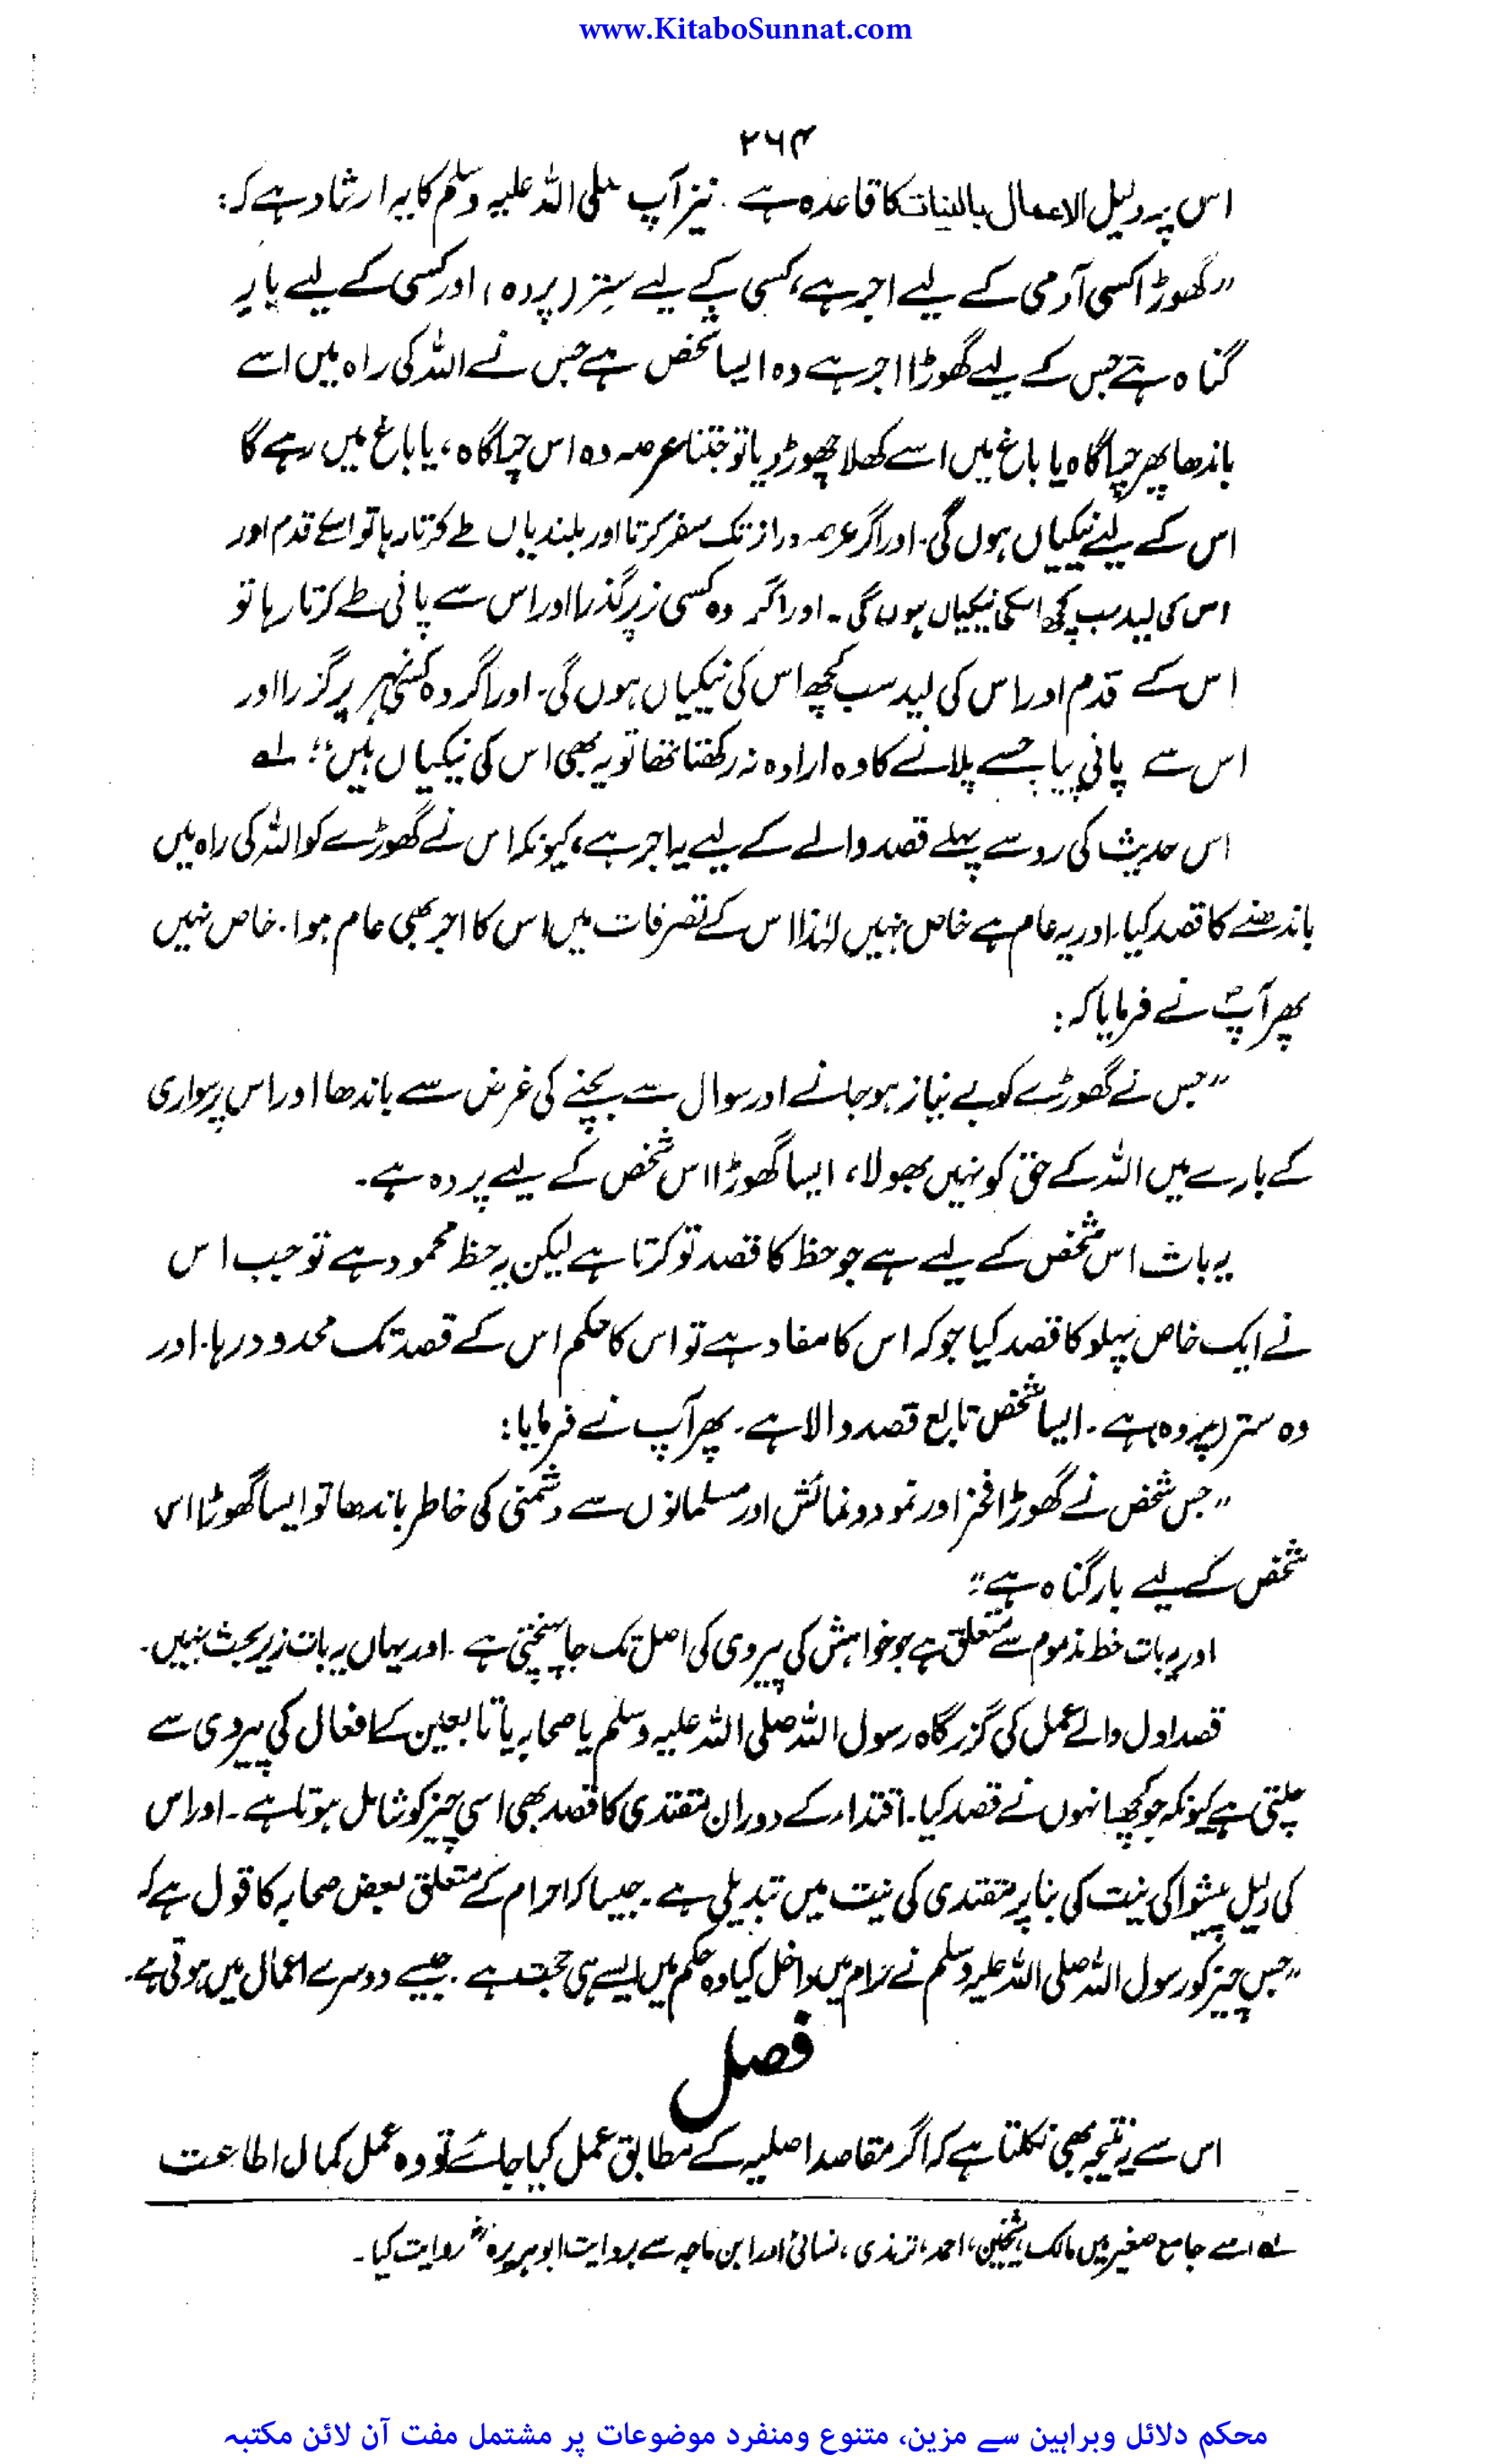 www.KitaboSunnat.com
۲۶۴
اس پہ دلیل الاعمال بالنیات کا قاعدہ ہے ۔ نیز آپ صلی اللہ علیہ وسلم کا یہ ارشاد ہے کہ:
"گھوڑا کسی آدمی کے لیے اجر ہے، کسی کے لیے سِتر (پردہ) اور کسی کے لیے بارِ
گناہ ہے جس کے لیے گھوڑا اجر ہے وہ ایسا شخص ہے جس نے اللہ کی راہ میں اسے
باندھا پھر چراگاہ یا باغ میں اسے کھلا چھوڑ دیا تو جتنا عرصہ وہ اس چراگاہ، یا باغ میں رہے گا
اس کے لیے نیکیاں ہوں گی۔ اور اگر عرصہ دراز تک سفر کرتا اور بلندیاں طے کرتا رہا تو اسکے قدم اور
اس کی لید سب کچھ اسکی نیکیاں ہوں گی ۔ اور اگر وہ کسی گذرا اور اس سے پانی طے کرتا رہا تو
اس کے قدم اور اس کی لید سب کچھ اس کی نیکیاں ہوں گی۔ اور اگر وہ کسی نہر پر گزرا اور
اس سے پانی پیا جسے پلانے کا وہ ارادہ نہ رکھتا تھا تو یہ بھی اس کی نیکیاں ہیں" لہ
اس حدیث کی رو سے پہلے قصد والے کے لیے یہ اجر ہے، کیونکہ اس نے گھوڑے کو اللہ کی راہ میں
باندھنے کا قصد کیا۔ اور یہ عام ہے خاص نہیں لہٰذا اس کے تصرفات میں اس کا اجر بھی عام ہوا۔ خاص نہیں
پھر آپؐ نے فرمایا کہ:
"جس نے گھوڑے کو بے نیاز ہو جانے اور سوال سے بچنے کی غرض سے باندھا اور اس پر سواری
کے بارے میں اللہ کے حق کو نہیں بھولا، ایسا گھوڑا اس شخص کے لیے پردہ ہے۔
یہ بات اس شخص کے لیے ہے جو حظ کا قصد تو کرتا ہے لیکن یہ حظ محمود ہے تو جب اس
نے ایک خاص پہلو کا قصد کیا جو کہ اس کا مفاد ہے تو اس کا حکم اس کے قصد تک محدود رہا۔ اور
وہ ستر (پردہ) ہے ۔ ایسا شخص تابع قصد والا ہے ۔ پھر آپ نے فرمایا:
"جس شخص نے گھوڑا فخر اور نمود و نمائش اور مسلمانوں سے دشمنی کی خاطر باندھا تو ایسا گھوڑا اس
شخص کے لیے بار گناہ ہے"
اور یہ بات حظ مذموم سے متعلق ہے جو خواہش کی پیروی کی اصل تک جا پہنچتی ہے ۔ اور یہاں یہ بات زیر بحث نہیں۔
قصد اول والے عمل کی گزرگاہ رسول اللہ صلی اللہ علیہ وسلم یا صحابہ یا تابعین کے افعال کی پیروی سے
چلتی ہے کیونکہ جو کچھ انہوں نے قصد کیا۔ اقتداء کے دوران مقتدی کا قصد بھی اسی چیز کو شامل ہوتا ہے ۔ اور اس
کی دلیل پیشوا کی نیت کی بنا پر مقتدی کی نیت میں تبدیلی ہے ۔ جیسا کہ احرام کے متعلق بعض صحابہ کا قول ہے کہ
"جس چیز کو رسول اللہ صلی اللہ علیہ وسلم نے حرام میں داخل کیا وہ حکم میں ایسے ہی حجت ہے ۔ جیسے دوسرے اعمال میں ہوتی ہے۔
فصل
اس سے یہ نتیجہ بھی نکلتا ہے کہ اگر مقاصد اصلیہ کے مطابق عمل کیا جائے تو وہ عمل کمال اطاعت
لہ اسے جامع صغیر میں مالک، شیخین، احمد، ترمذی، نسائی اور ابن ماجہ سے بروایت ابوہریرہؓ روایت کیا۔
محکم دلائل وبراہین سے مزین، متنوع ومنفرد موضوعات پر مشتمل مفت آن لائن مکتبہ